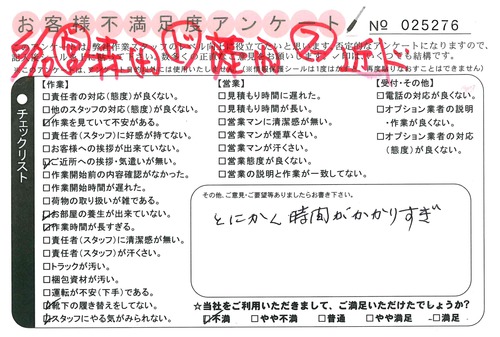 お客様不満足度アンケート
No 025276
チェックリスト
【作業】
□責任者の対応(態度)が良くない。
□他のスタッフの対応(態度)が良くない。
□作業を見ていて不安がある。
□責任者(スタッフ)に好感が持てない。
□お客様への挨拶が出来ていない。
□ご近所への挨拶・気遣いが無い。
□作業開始前の内容確認がなかった。
□作業開始時間が遅れた。
□荷物の取り扱いが雑である。
□お部屋の養生が出来ていない。
□作業時間が長すぎる。
□責任者(スタッフ)に清潔感が無い。
□責任者(スタッフ)が汗くさい。
□トラックが汚い。
□梱包資材が汚い。
□運転が不安(下手)である。
□靴下の履き替えをしてない。
□スタッフにやる気がみられない。
【営業】
□見積もり時間に遅れた。
□見積もり時間が長い。
□営業マンに清潔感が無い。
□営業マンが煙草くさい。
□営業マンが汗くさい。
□営業態度が良くない。
□営業の説明と作業が一致してない。
【受付・その他】
□電話の対応が良くない。
□オプション業者の説明
・作業が良くない。
□オプション業者の対応
(態度)が良くない。
その他、ご意見・ご要望等ありましたらお書き下さい。
とにかく時間がかかりすぎ
☆当社をご利用いただきまして、ご満足いただけたでしょうか?
□不満 □やや不満 □普通 □やや満足 □満足